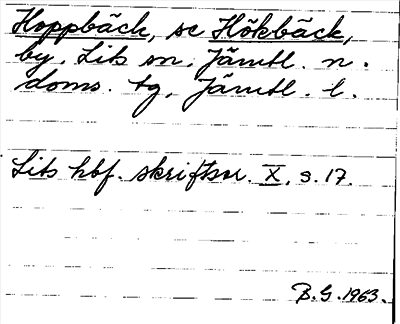 Hoppbäck, se Hökbäck,
by. Lits sn. Jämtl. n.
doms. tg, Jämtl. l.
Lits hbf. skriftser. X, s. 17.
B.G. 1963.